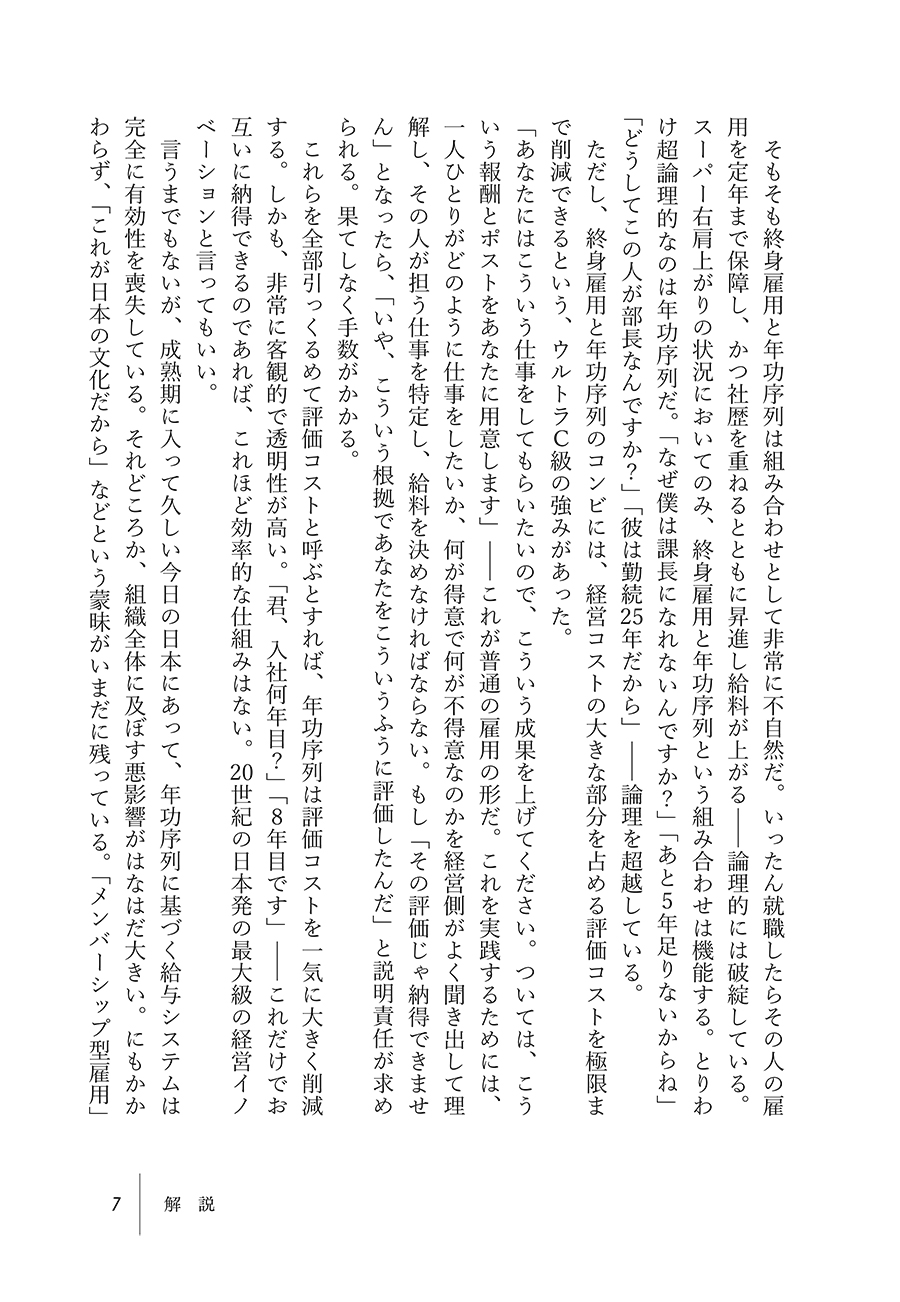 そもそも終身雇用と年功序列は組み合わせとして非常に不自然だ。いったん就職したらその人の雇
用を定年まで保障し、かつ社歴を重ねるとともに昇進し給料が上がる——論理的には破綻している。
スーパー右肩上がりの状況においてのみ、終身雇用と年功序列という組み合わせは機能する。とりわ
け超論理的なのは年功序列だ。「なぜ僕は課長になれないんですか？」「あと５年足りないからね」
「どうしてこの人が部長なんですか？」「彼は勤続25年だから」——論理を超越している。
ただし、終身雇用と年功序列のコンビには、経営コストの大きな部分を占める評価コストを極限ま
で削減できるという、ウルトラＣ級の強みがあった。
「あなたにはこういう仕事をしてもらいたいので、こういう成果を上げてください。ついては、こう
いう報酬とポストをあなたに用意します」——これが普通の雇用の形だ。これを実践するためには、
一人ひとりがどのように仕事をしたいか、何が得意で何が不得意なのかを経営側がよく聞き出して理
解し、その人が担う仕事を特定し、給料を決めなければならない。もし「その評価じゃ納得できませ
ん」となったら、「いや、こういう根拠であなたをこういうふうに評価したんだ」と説明責任が求め
られる。果てしなく手数がかかる。
これらを全部引っくるめて評価コストと呼ぶとすれば、年功序列は評価コストを一気に大きく削減
する。しかも、非常に客観的で透明性が高い。「君、入社何年目？」「８年目です」——これだけでお
互いに納得できるのであれば、これほど効率的な仕組みはない。20世紀の日本発の最大級の経営イノ
ベーションと言ってもいい。
言うまでもないが、成熟期に入って久しい今日の日本にあって、年功序列に基づく給与システムは
完全に有効性を喪失している。それどころか、組織全体に及ぼす悪影響がはなはだ大きい。にもかか
わらず、「これが日本の文化だから」などという蒙昧がいまだに残っている。「メンバーシップ型雇用」
7 解説